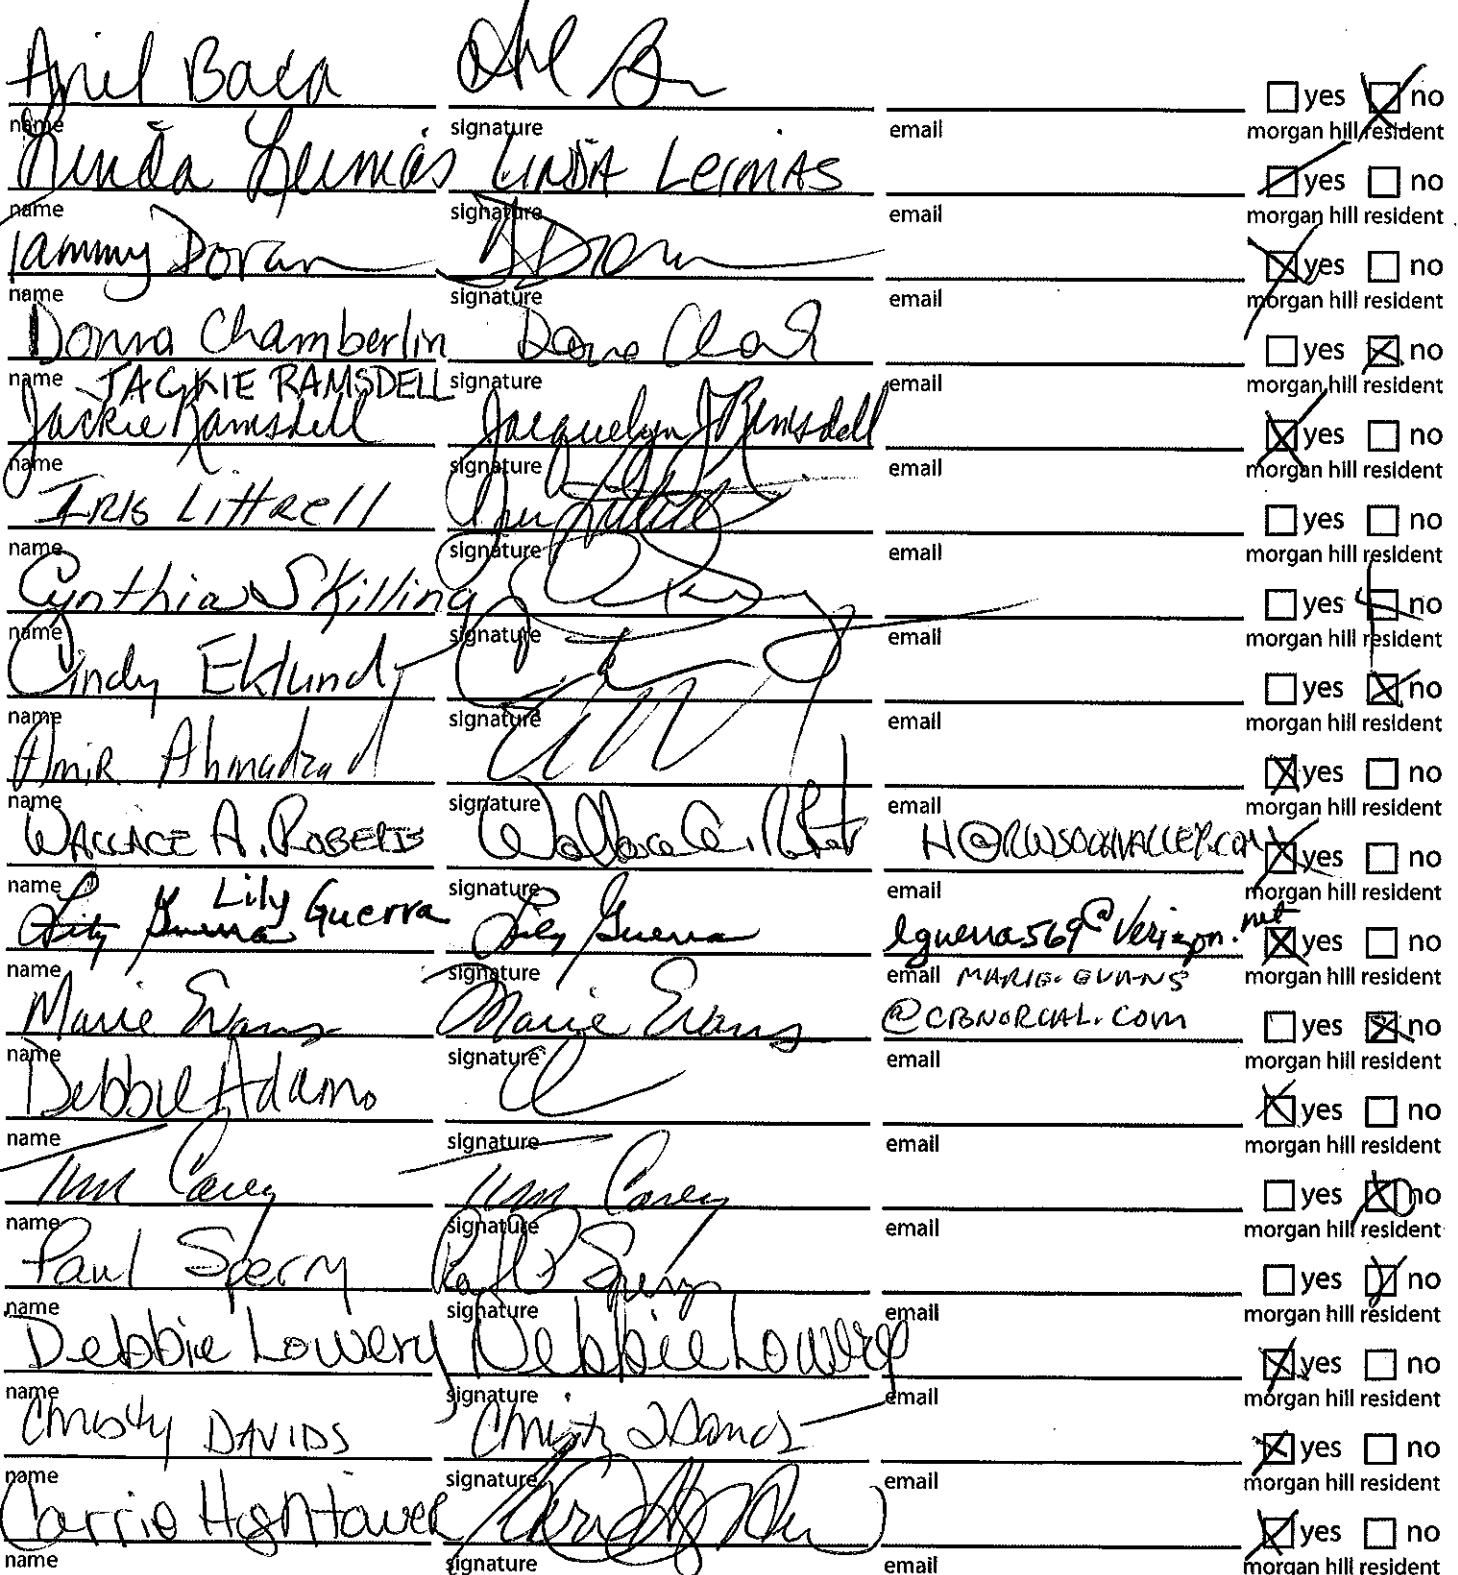 Anil Baca yes no
name signature email morgan hill resident
Linda Lermas LINDA LermAS yes no
name signature email morgan hill resident
Tammy Doran yes no
name signature email morgan hill resident
Donna Chamberlin yes no
name signature email morgan hill resident
JACKIE RAMSDELL
Jackie Ramsdell Jacquelyn J Ramsdell yes no
name signature email morgan hill resident
IRIS LittRell yes no
name signature email morgan hill resident
Cynthia Skilling yes no
name signature email morgan hill resident
Cindy Eklund yes no
name signature email morgan hill resident
AmiR Ahmadzad yes no
name signature email morgan hill resident
WALLACE A. ROBERTS Wallace A. yes no
name signature email morgan hill resident
Lily Guerra Lily Guerra Lily Guerra lguerra569@Verizon.net yes no
name signature email morgan hill resident
MARIE.EVANS
Marie Evans Marie Evans @CBNORCAL.COM yes no
name signature email morgan hill resident
Debbie Adamo yes no
name signature email morgan hill resident
Tim Carey Tim Carey yes no
name signature email morgan hill resident
Paul Sperry yes no
name signature email morgan hill resident
Debbie Lowery Debbie Lowery yes no
name signature email morgan hill resident
Christy DAVIDS Christy Davids yes no
name signature email morgan hill resident
Carrie HighTower yes no
name signature email morgan hill resident